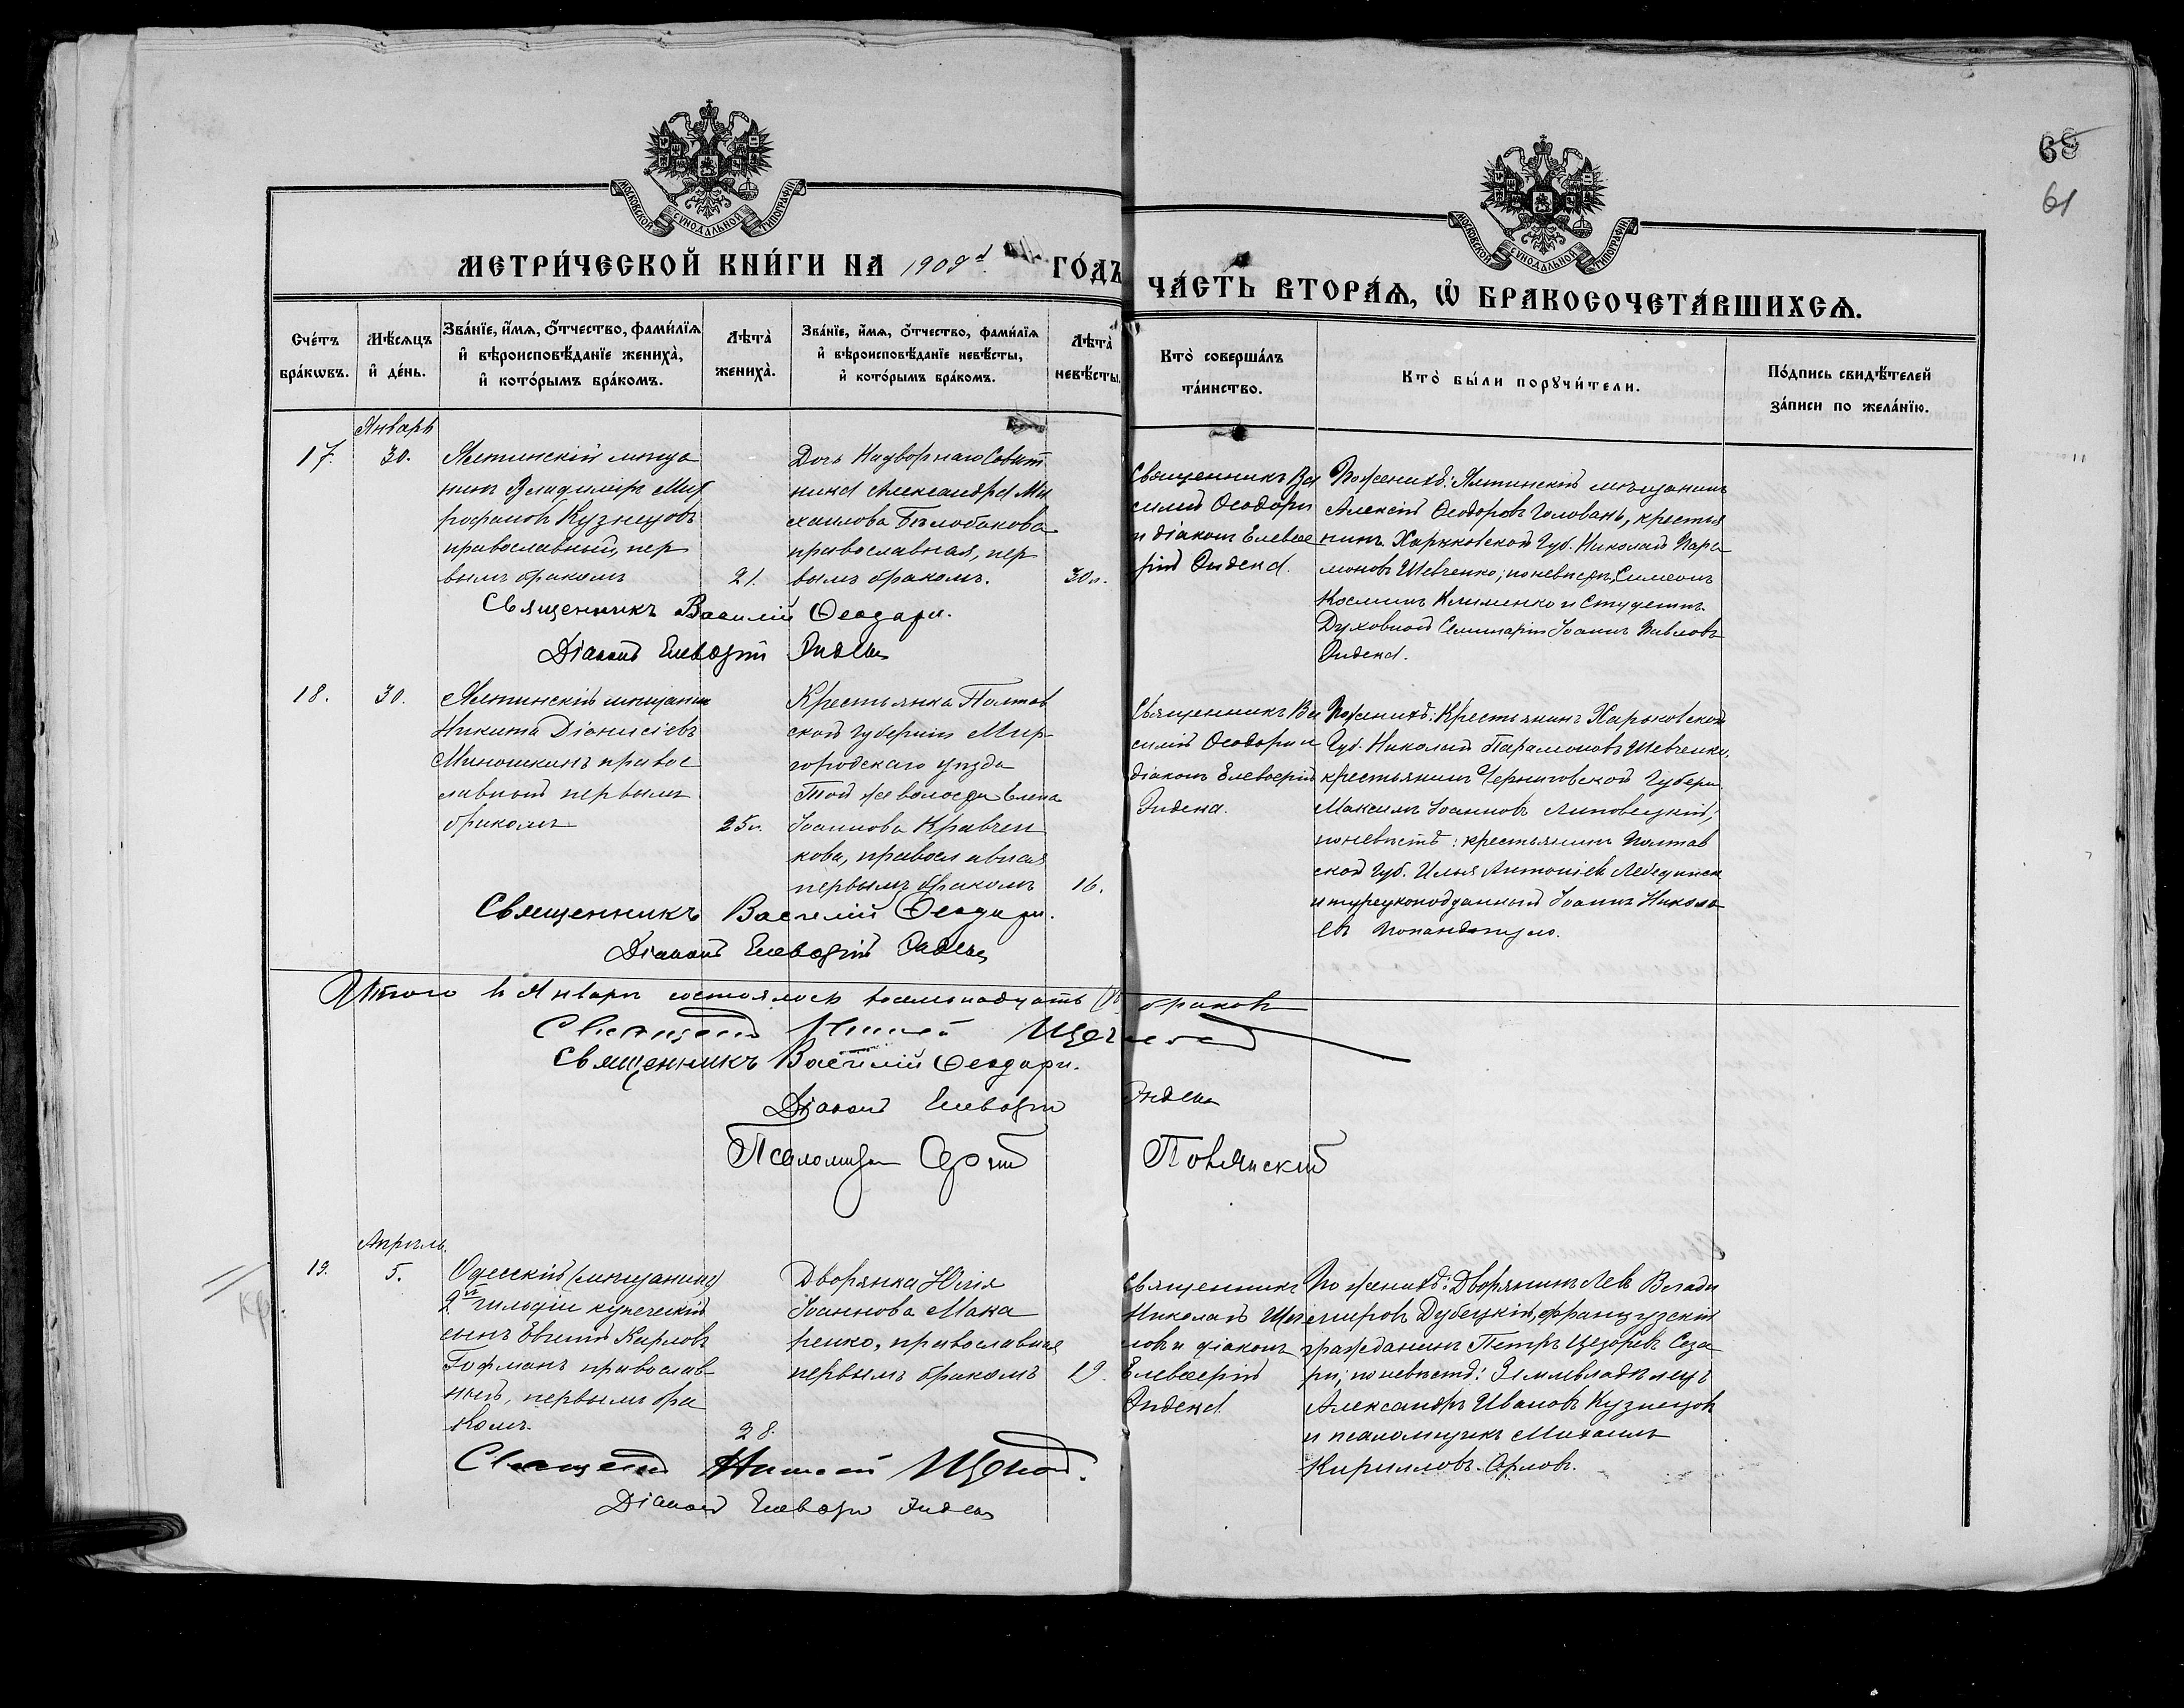 68
61
МОСКОВСКОЙ СѴНОДАЛЬНОЙ ТИПОГРАФІИ
МОСКОВСКОЙ СѴНОДАЛЬНОЙ ТИПОГРАФІИ
МЕТРИ́ЧЕСКОЙ КНИ́ГИ НА 1909 ГО́ДЪ
ЧА́СТЬ ВТОРА́Ѧ, Ѡ҆ БРАКОСОЧЕТА́ВШИХСѦ.
Сче́тъ
бра́кѡвъ.
Мѣ́сѧцъ
и҆ де́нь.
Зва́нїе, и҆́мѧ, о҆́тчество, фами́лїѧ
и҆ вѣроисповѣ́данїе жениха̀,
и҆ кото́рымъ бра́комъ.
Лѣта̀
жениха̀.
Зва́нїе, и҆́мѧ, о҆́тчество, фами́лїѧ
и҆ вѣроисповѣ́данїе невѣ́сты,
и҆ кото́рымъ бра́комъ.
Лѣта̀
невѣ́сты.
Кто̀ соверша́лъ
та́инство.
Кто̀ бы́ли порꙋчи́тели.
По́дпись свидѣ́телей
за́писи по жела́нїю.
17.
Январь
30.
Ялтинскій мѣща
нинъ Владиміръ Мит
рофановъ Кузнецовъ
православный, пер
вымъ бракомъ
21.
Дочь Надворнаго Совѣт
ника Александра Ми
хаилова Бѣлобакова
православная, пер
вымъ бракомъ.
30л.
Священникъ Ва
силій Ѳеодори
и діаконъ Елевѳе
рій Эндека.
По женихѣ: Ялтинскій мѣщанинъ
Алексій Ѳеодоровъ Головань, крестья
нинъ Харьковской Губ. Николай Пара
моновъ Шевченко; по невѣстѣ: Симеонъ
Косминъ Клименко и Студентъ
Духовной Семинаріи Іоаннъ Павловъ
Эндека.
Священникъ Василій Ѳеодори.
Діаконъ Елевѳерій Эндека
18.
30.
Ялтинскій мѣщанинъ
Никита Діонисіевъ
Минюшкинъ правос
лавный первымъ
бракомъ
25л.
Крестьянка Полтав
ской губерніи Мир-
городскаго уѣзда
Той же волости Елена
Іоаннова Кравчен
кова, православная
первымъ бракомъ
16.
Священникъ Ва
силій Ѳеодори и
діаконъ Елевѳерій
Эндека.
По женихѣ: Крестьянинъ Харьковской
Губ. Николай Парамоновъ Шевченко,
крестьянинъ Черниговской Губерн
Максимъ Іоанновъ Липовецкій,
по невѣстѣ: крестьянинъ Полтав
ской Губ. Илья Антоніевъ Лебединск
и турецкоподданный Іоаннъ Никола
евъ Попандопуло.
Священникъ Василій Ѳеодори.
Діаконъ Елевѳерій Эндека
Итого въ Январѣ состоялось восемнадцать (18) браковъ
Священникъ Николай Щегловъ
Священникъ Василій Ѳеодори.
Діаконъ Елевѳерій Эндека
Псаломщикъ Сергій Полянскій
19.
Апрѣль.
5.
Одесскій (мѣщанинъ)
2й гильдіи купеческій
сынъ Евгеній Карловъ
Гофманъ православ-
ный, первымъ бра
комъ.
28.
Дворянка Юлія
Іоаннова Мака
ренко, православная
первымъ бракомъ
19.
Священникъ
Николай Щег
ловъ и діаконъ
Елевѳерій
Эндека
По женихѣ: Дворянинъ Левъ Влади
мировъ Дубецкій, французскій
гражданинъ Петръ Цезаревъ Соза
ри; по невѣстѣ: Землевладѣлецъ
Александръ Ивановъ Кузнецовъ
и псаломщикъ Михаилъ
Кирилловъ Орловъ.
Священникъ Николай Щегловъ.
Діаконъ Елевѳерій Эндека